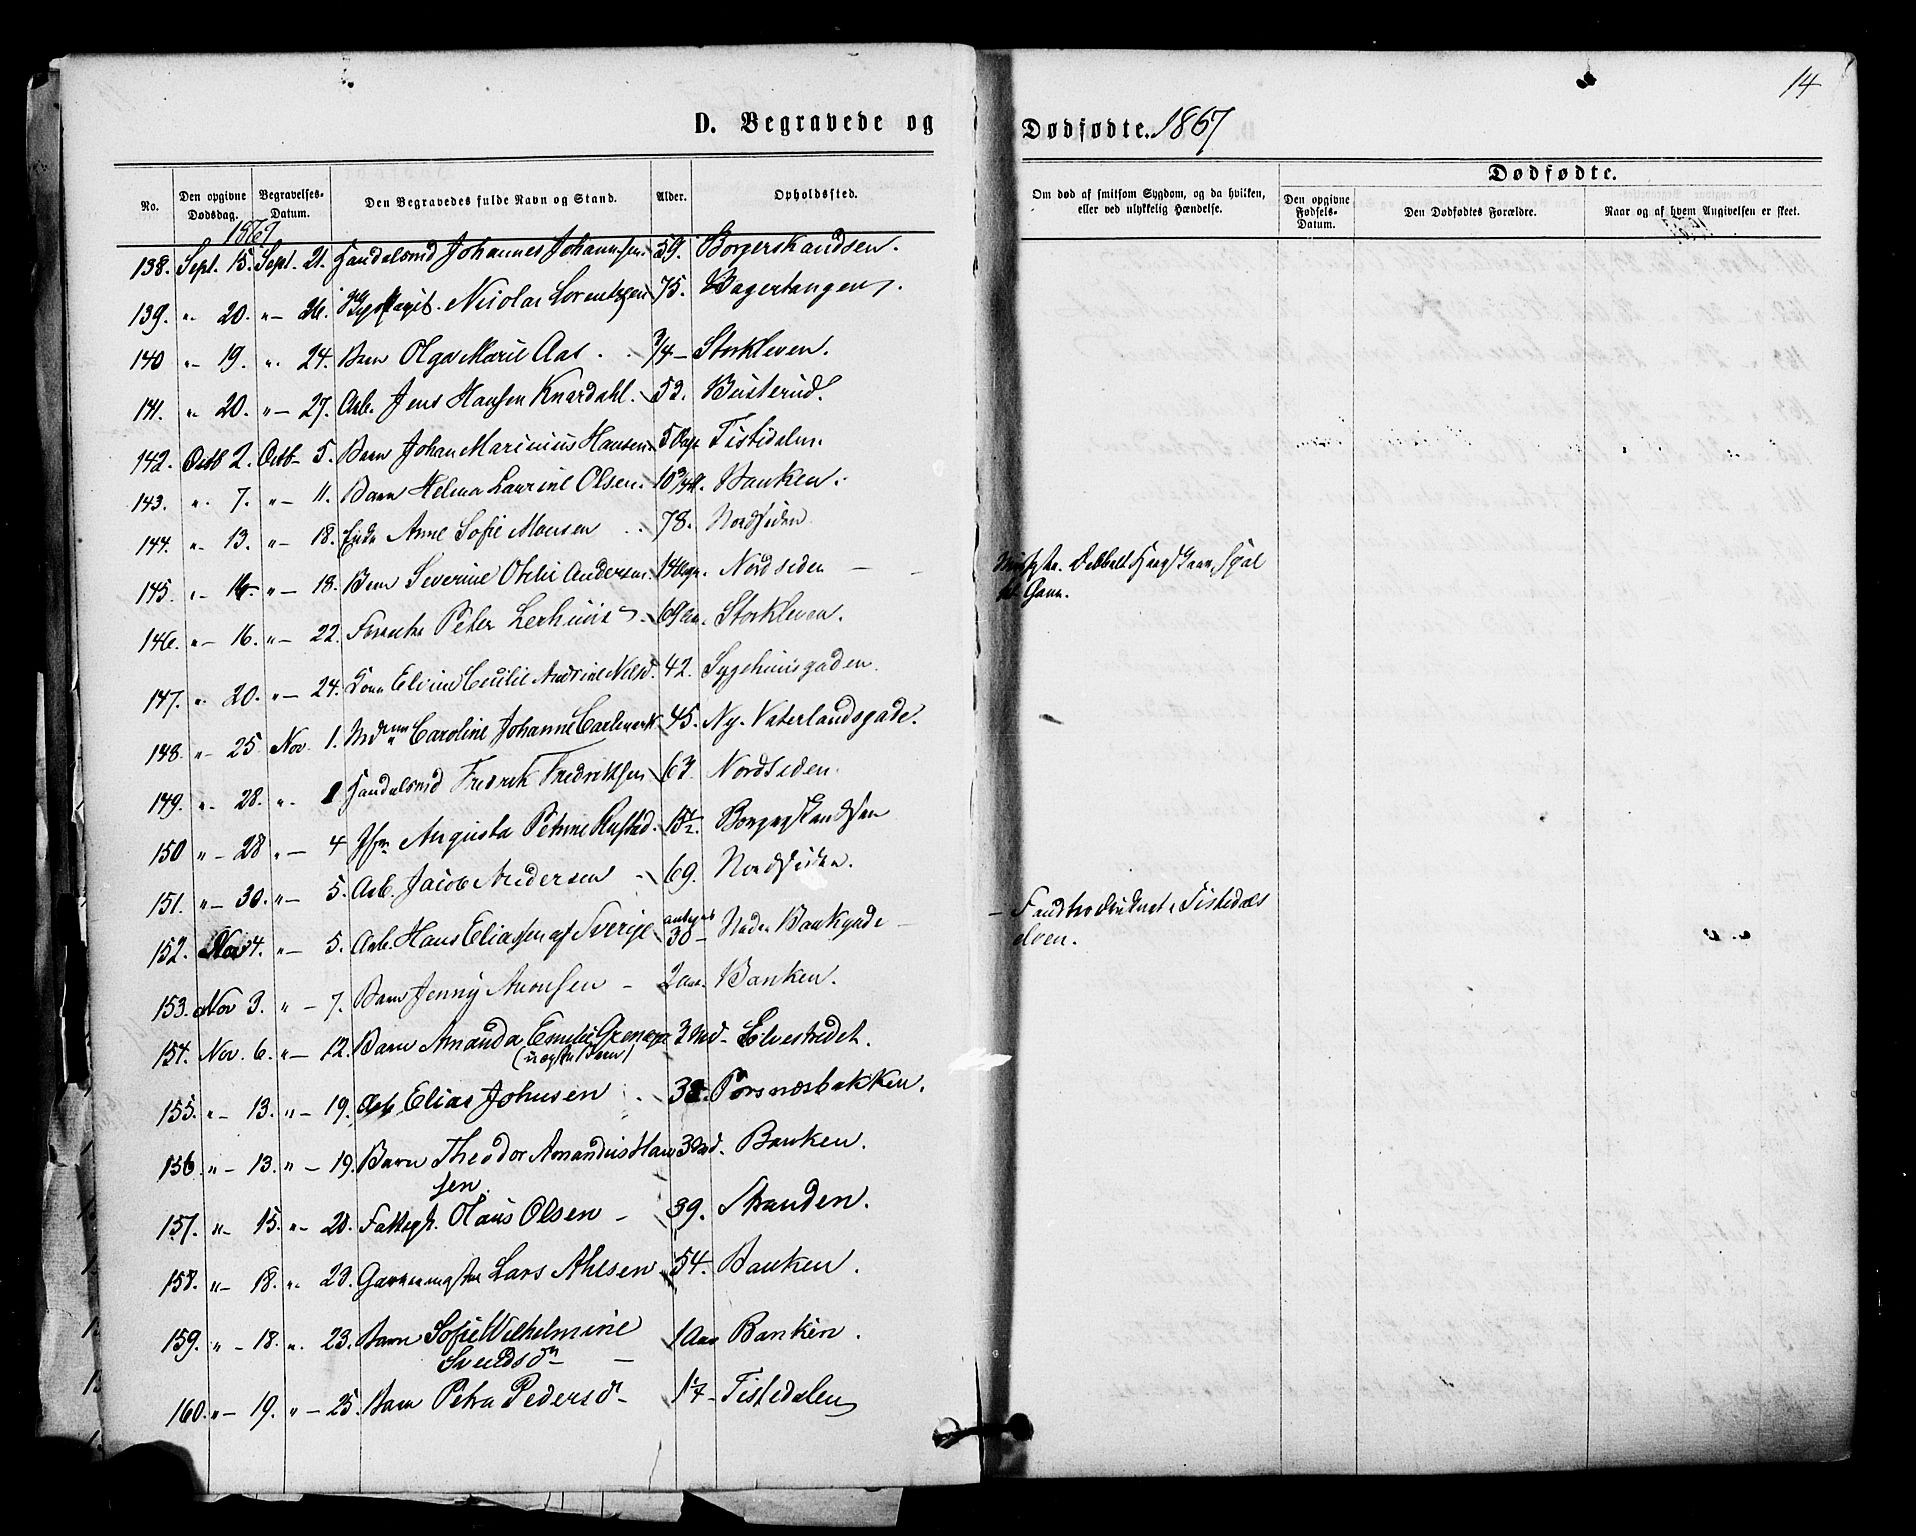 14
D. Begravede og Dødfødte. 1867
No. Den opgivne Dødsdag. Begravelses-Datum. Den Begravedes fulde Navn og Stand. Alder. Opholdssted. Om død af smitsom Sygdom, og da hvilken, eller ved ulykkelig Hændelse. Dødfødte. Den opgivne Fødsels-Datum. Den Dødfødtes Forældre. Naar og af hvem Angivelsen er skeet.
1867
138. Sept. 15. Sept. 21. Handelsmd Johannes Johannesen 59. Borgerskandsen.
139. " 20. " 26. Nicolai Lorentzen 75. Bagertangen.
140 " 19. " 24. Barn Olga Marie Aas 3/4 Storkleven.
141. " 20. " 27. Arb. Jens Hansen Knardahl. 53. Busterud.
142. Octb 2. Octb 5. Barn Johan Marinius Hansen 5 Dage Tistedalen
143. " 7. " 11. Barn Helma Laurine Olsen. 10 3/4 Banken.
144. " 13. " 18. Enke Anne Sofie Monsen 78. Nordsiden
145. " 16 " 18. Barn Severine Otilie Andersen Nordsiden
146. " 16. " 22. Peter 69 Aar. Storkleven.
147. " 20. " 24. Kone Eline Cecilie Andrine Nilsd. 42. Sygehuusgaden.
148. " 25 Nov. 1. Caroline Johanne 45. Ny. Vaterlandsgade.
149. " 28. " 1 Handelsmd Fredrik Fredriksen 63. Nordsiden.
150 " 28 " 4 Jfr. Augusta Petrine Rustad. Borgerskandsen
151. " 30. " 5. Arb. Jacob Andersen 69. Nordsiden.
152. Nov 4. " 5. Arb. Hans Eliassen af Sverige antagel 30 Nedre Bankgade Fundtes druknet i Tistedals
elven.
153. Nov 3. " 7. Barn Jenny Aronsen 2 Aar. Banken.
154. Nov. 6. " 12. Barn Amanda Emilie 3 Md Elvestrædet.
(uægte Barn)
155. " 13. " 19. Arb. Elias Johnsen 38. Porsnæsbakken.
156 " 13. " 19. Barn Theodor Amandus Han 3 Md. Banken.
sen.
157. " 15. " 20. Fattigl. Olaus Olsen 39. Stranden.
158. " 18. " 23. Lars Ahlsen 54. Banken.
159. " 18. " 23. Barn Sofie Wilhelmine 1 Aar Banken.
Svendsdn
160. " 19. " 25. Barn Petra Pedersd 17 Tistedalen